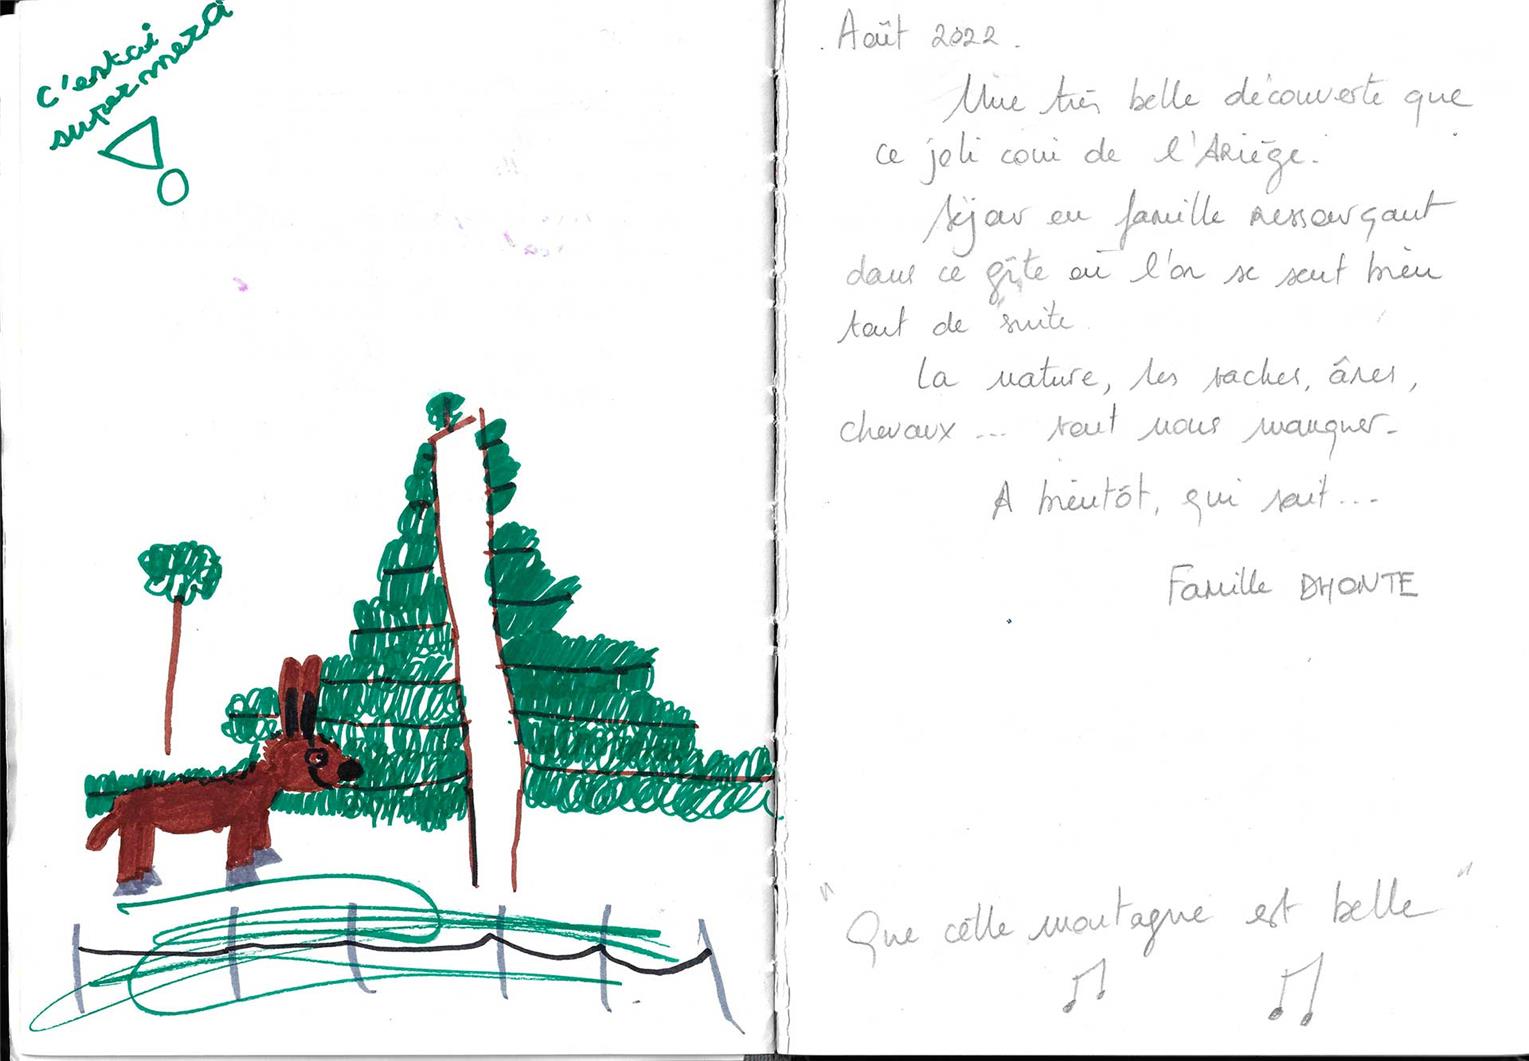 c'estai
super merci
!
Août 2022.
Une très belle découverte que
ce joli coin de l'Ariège.
Séjour en famille ressourçant
dans ce gîte où l'on se sent bien
tout de suite.
La nature, les vaches, ânes,
chevaux ... vont nous manquer.
A bientôt, qui sait ...
Famille DHONTE
"Que cette montagne est belle"